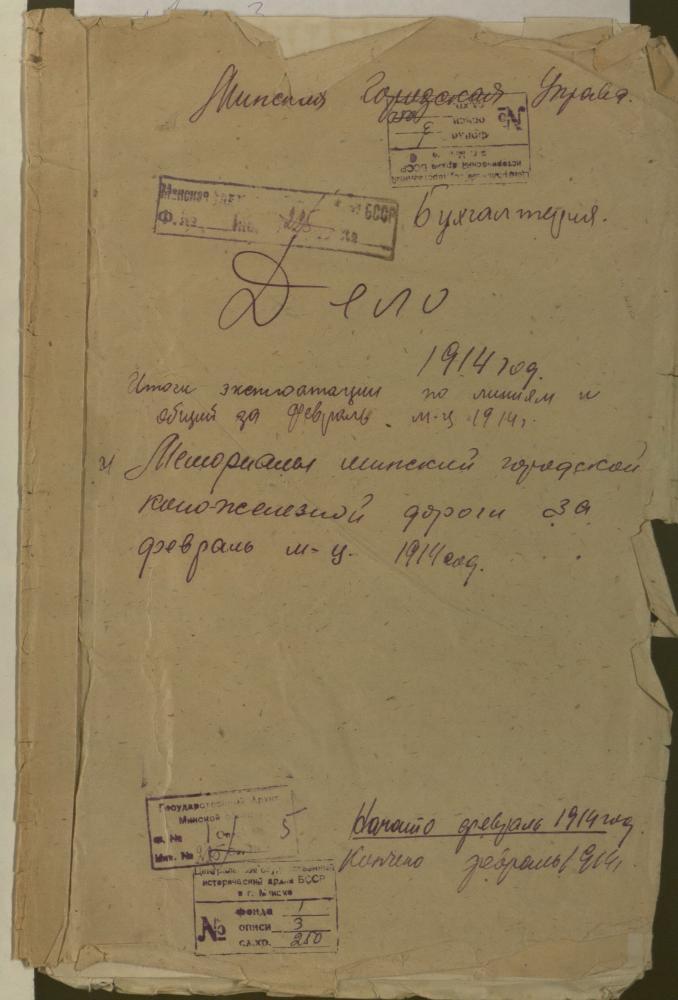 Минская Городская Управа.
№
фонда
описи 3
ед.хр.
Центральный государственный
исторический архив БССР
в г. Минске
БССР
Ф. №
225
Бухгалтерия.
Дело
1914 год.
Итоги эксплоатации по линиям и
общий за февраль м-ц 1914 г.
и Мемориалы минской городской
коно-железной дороги за
февраль м-ц. 1914 год.
Государственный Архив
Минской
Ф. № 1 Оп. 5
Инв. № 225
Начато февраль 1914 год
Кончено февраль 1914 г.
Центральный государственный
исторический архив БССР
в г. Минске
№
фонда 1
описи 3
ед.хр. 250